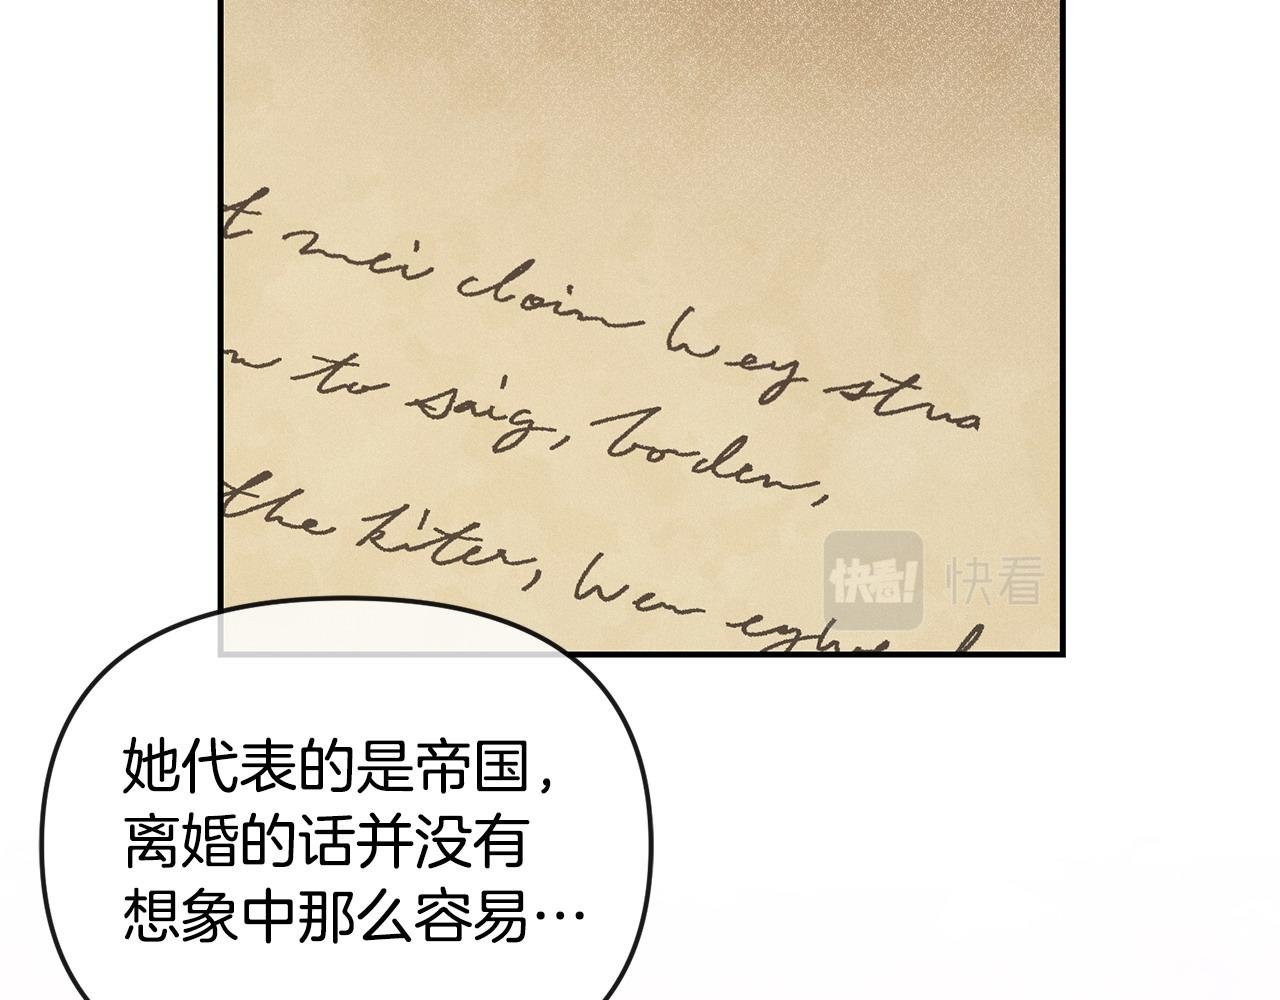 t mei cloin wey stua
n to saig, boden,
the kiter, wen
快看! 快看
她代表的是帝国，
离婚的话并没有
想象中那么容易…